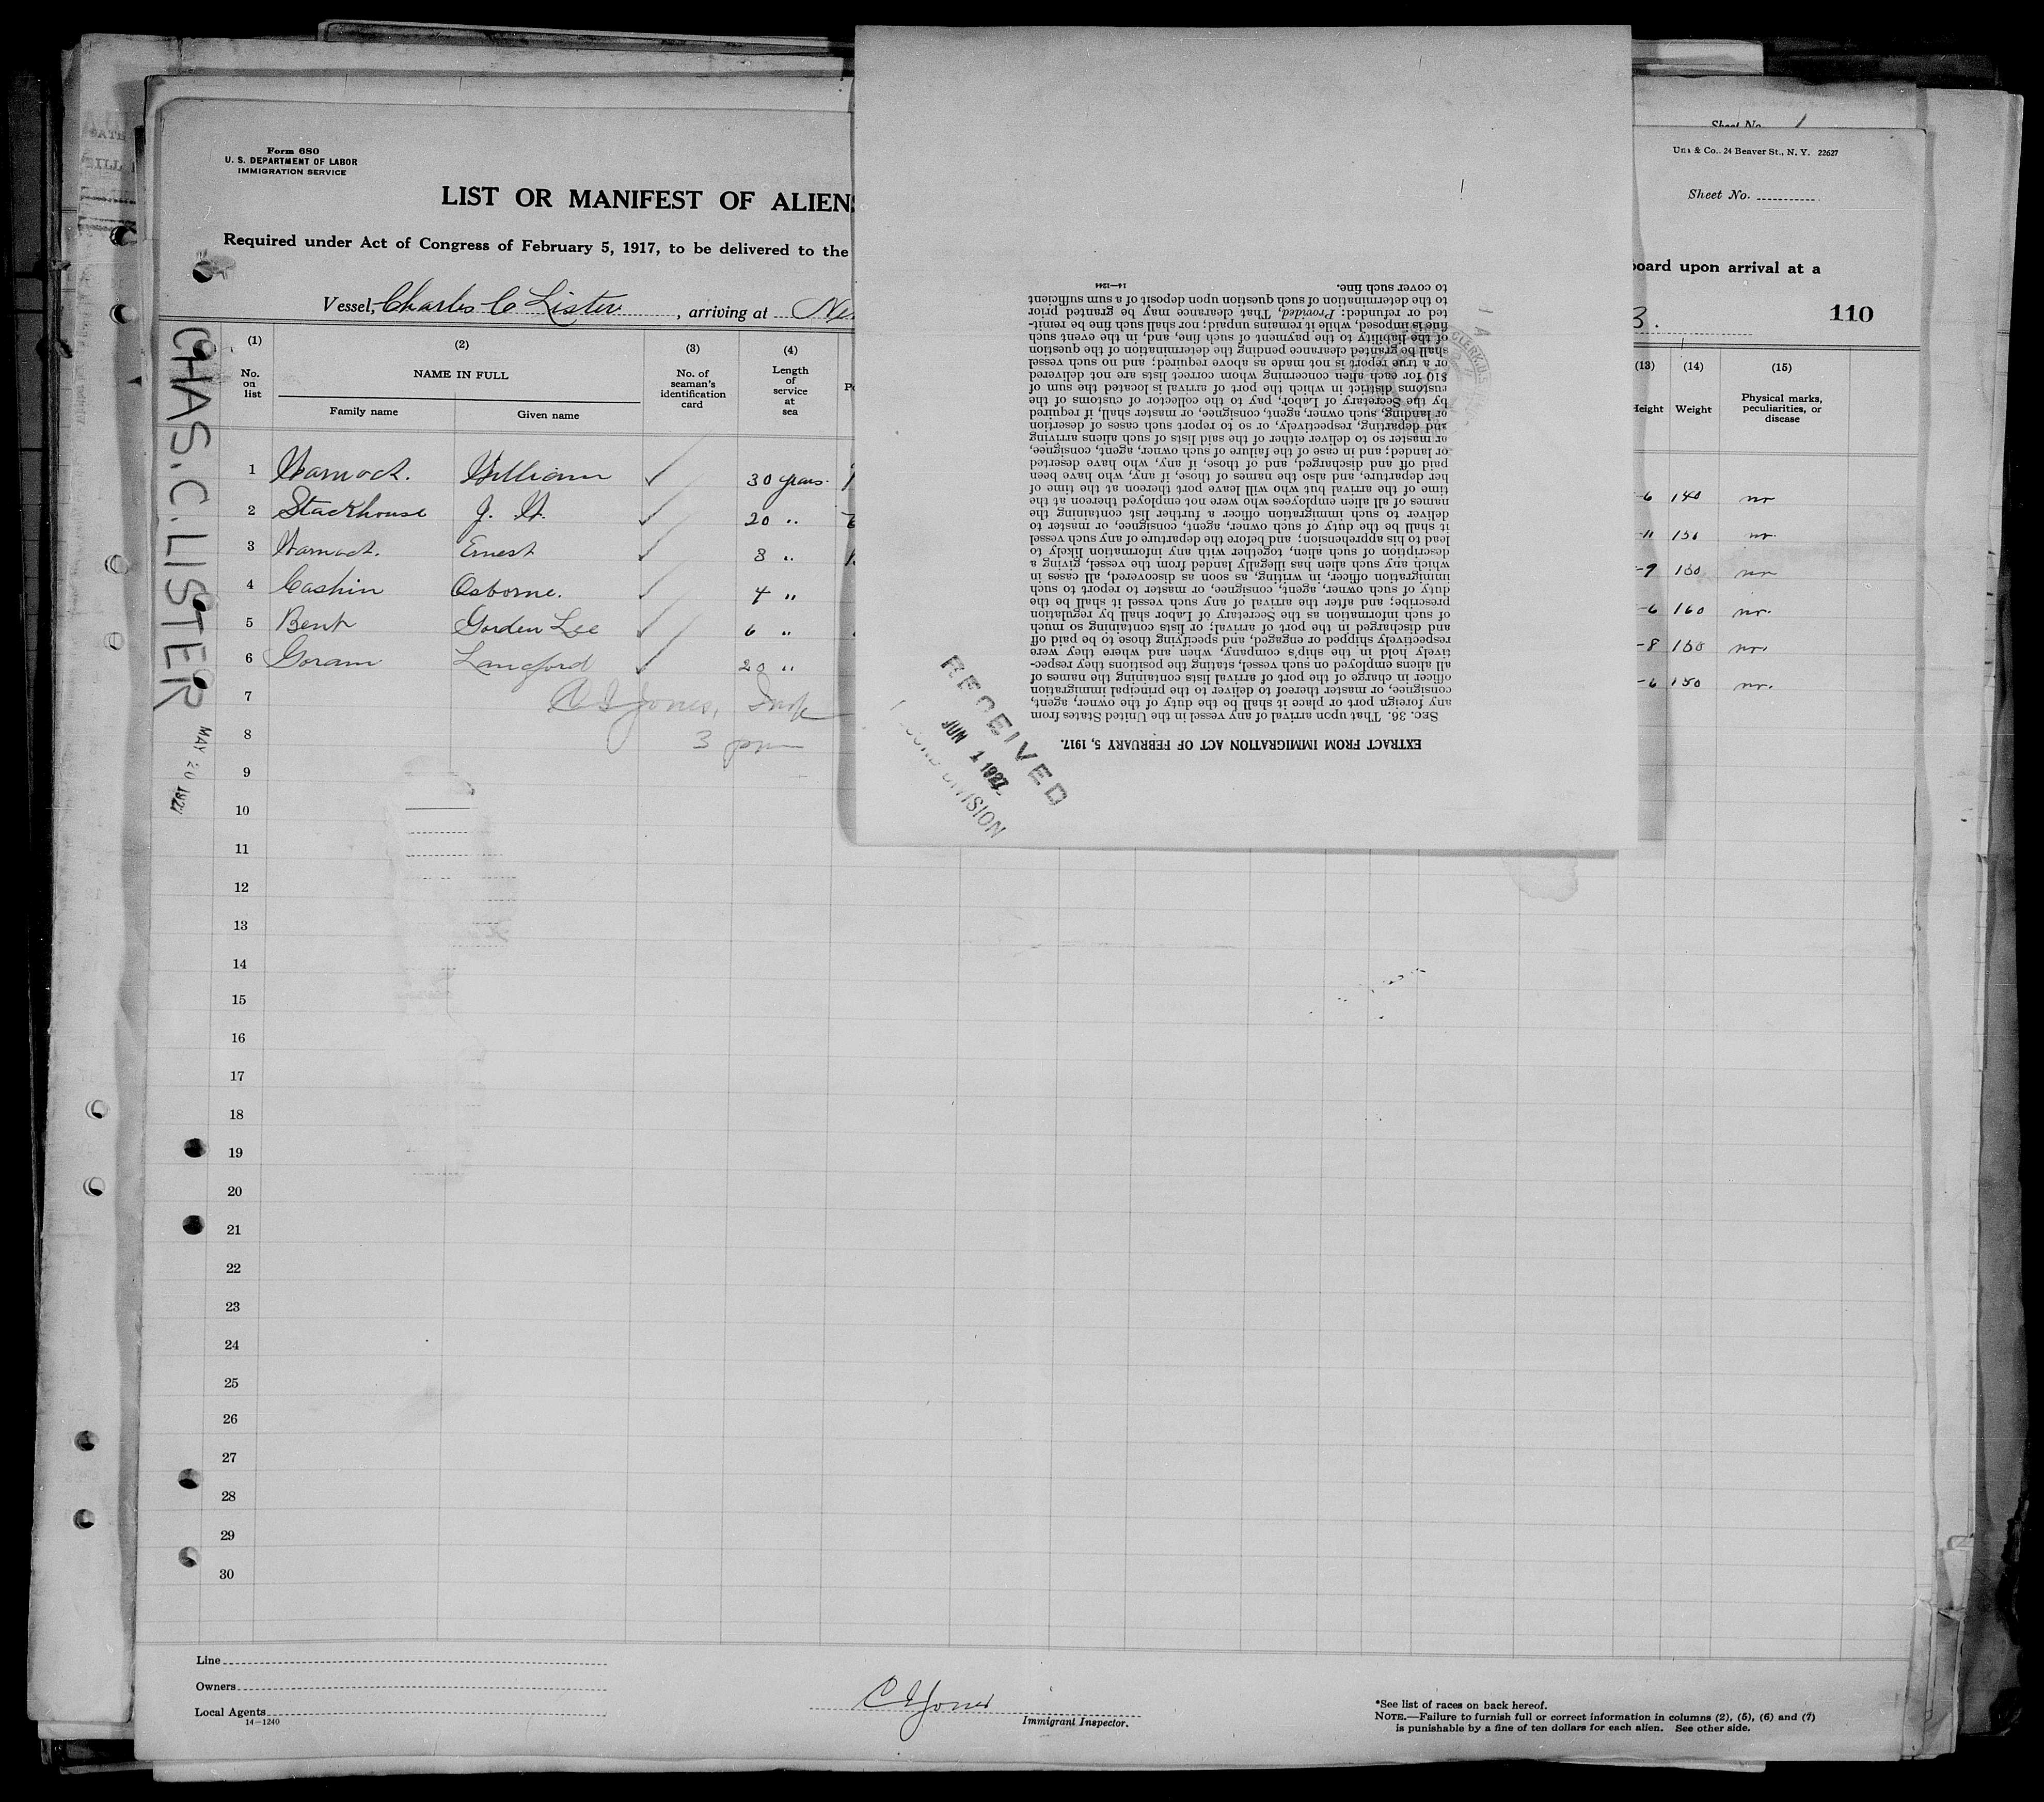 Sheet No. 1
Form 680
U. S. DEPARTMENT OF LABOR
IMMIGRATION SERVICE
& Co., 24 Beaver St., N. Y. 22627
Sheet No.
LIST OR MANIFEST OF ALIENS
Required under Act of Congress of February 5, 1917, to be delivered to the
board upon arrival at a
Vessel, Charles C Lister, arriving at
3.
110
CHAS. C. LISTER
MAY 20 1927
(1) No. on list
(2) NAME IN FULL
Family name Given name
(3) No. of seaman's identification card
(4) Length of service at sea
(13) Height
(14) Weight
(15) Physical marks, peculiarities, or disease
1 Warnock. William ✓ 30 years. -6 140 no
2 Stackhouse J. W. ✓ 20 " -11 no
3 Warnock. Ernest ✓ 8 " -9 no
4 Cashin Osborne. ✓ 4 " -6 160 no.
5 Bent Gorden Lee ✓ 6 " -8 no.
6 Goram Langford ✓ 20 " -6 no.
7
Jones, Insp
8
3 pm
9
10
11
12
13
14
15
16
17
18
19
20
21
22
23
24
25
26
27
28
29
30
EXTRACT FROM IMMIGRATION ACT OF FEBRUARY 5, 1917.
SEC. 36. That upon arrival of any vessel in the United States from
any foreign port or place it shall be the duty of the owner, agent,
consignee, or master thereof to deliver to the principal immigration
officer in charge of the port of arrival lists containing the names of
all aliens employed on such vessel, stating the positions they respec-
tively hold in the ship's company, when and where they were
respectively shipped or engaged, and specifying those to be paid off
and discharged in the port of arrival; or lists containing so much
of such information as the Secretary of Labor shall by regulation
prescribe; and after the arrival of any such vessel it shall be the
duty of such owner, agent, consignee, or master to report to such
immigration officer, in writing, as soon as discovered, all cases in
which any such alien has illegally landed from the vessel, giving a
description of such alien, together with any information likely to
lead to his apprehension; and before the departure of any such vessel
it shall be the duty of such owner, agent, consignee, or master to
deliver to such immigration officer a further list containing the
names of all alien employees who were not employed thereon at the
time of the arrival but who will leave port thereon at the time of
her departure, and also the names of those, if any, who have been
paid off and discharged, and of those, if any, who have deserted
or landed; and in case of the failure of such owner, agent, consignee,
or master so to deliver either of the said lists of such aliens arriving
and departing, respectively, or so to report such cases of desertion
or landing, such owner, agent, consignee, or master shall, if required
by the Secretary of Labor, pay to the collector of customs of the
customs district in which the port of arrival is located the sum of
$10 for each alien concerning whom correct lists are not delivered
or a true report is not made as above required; and no such vessel
shall be granted clearance pending the determination of the question
of the liability to the payment of such fine, and, in the event such
fine is imposed, while it remains unpaid; nor shall such fine be remit-
ted or refunded: Provided, That clearance may be granted prior
to the determination of such question upon deposit of a sum sufficient
to cover such fine.
14—1244
RECEIVED
JUN 1 1927
DIVISION
Line
Owners
Local Agents
14—1240
Jones
Immigrant Inspector.
*See list of races on back hereof.
NOTE.—Failure to furnish full or correct information in columns (2), (5), (6) and (7)
is punishable by a fine of ten dollars for each alien. See other side.